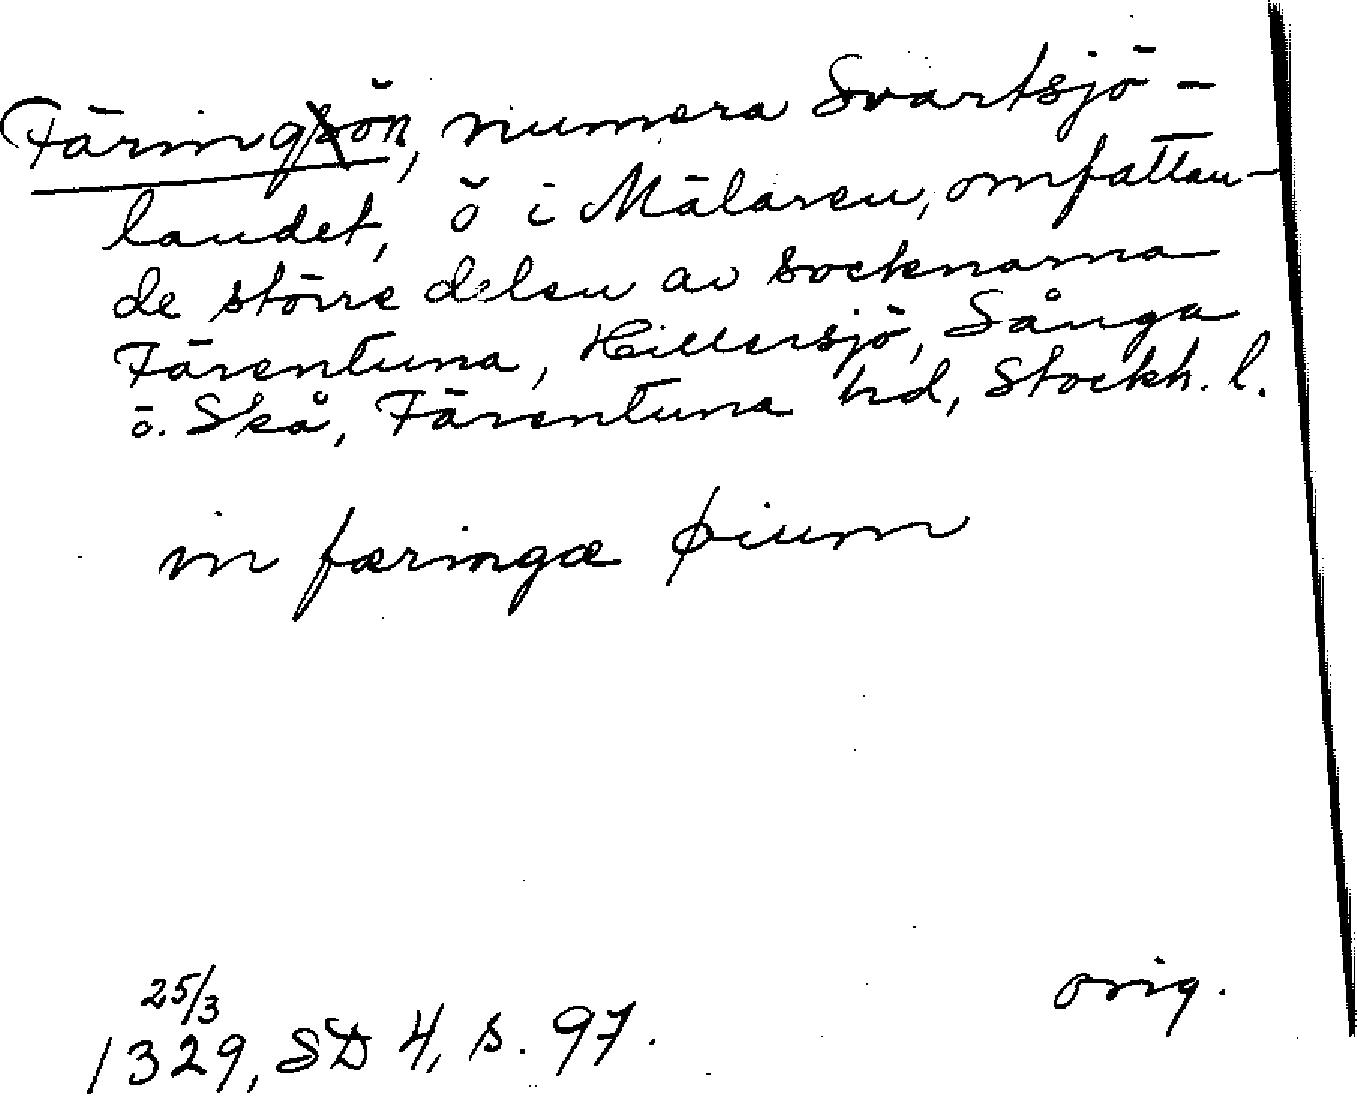 Färingön, numera Svartsjö-
landet, ö i Mälaren, omfattan-
de större delen av socknarna
Färentuna, Hillersjö, Sånga
o. Skå, Färentuna hd, Stockh. l.
in færingæ þium
25/3
1329, SD 4, s. 97.
orig.